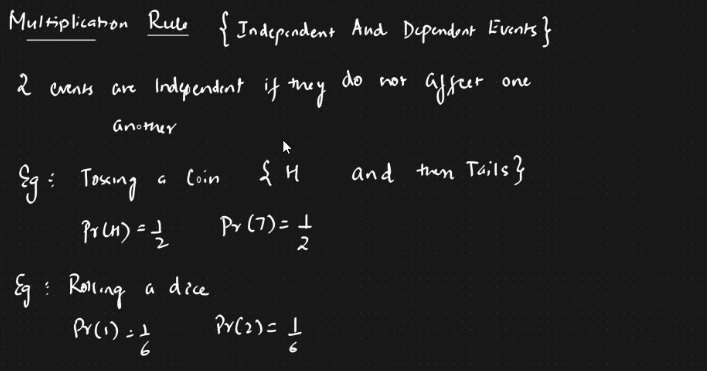 Multiplication Rule { Independent And Dependent Events }
2 events are Independent if they do not affect one
another
Eg : Tossing a Coin { H and then Tails }
Pr(H) = 1/2 Pr(T) = 1/2
Eg : Rolling a dice
Pr(1) = 1/6 Pr(2) = 1/6